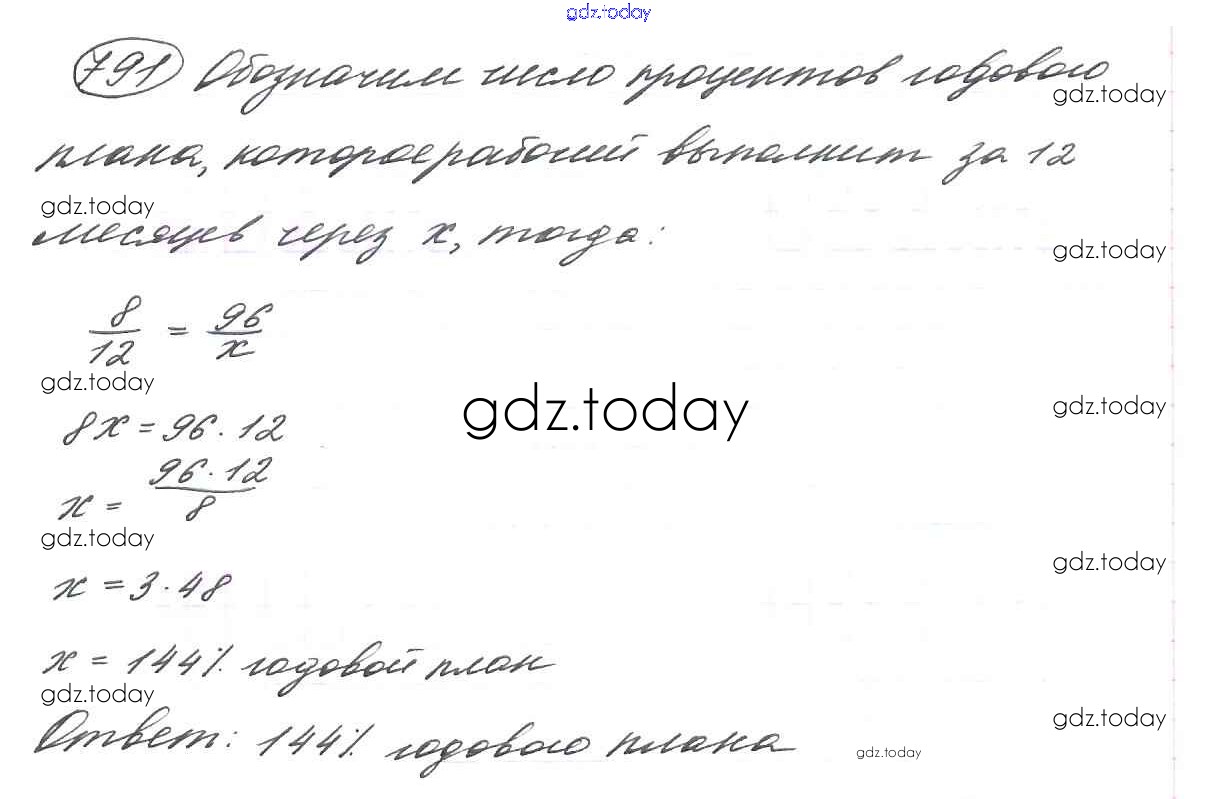 gdz.today
791 Обозначим число процентов годового
gdz.today
плана, которое рабочий выполнит за 12
gdz.today
месяцев через x, тогда:
gdz.today
8/12 = 96/x
gdz.today
gdz.today
gdz.today
8x = 96 · 12
x = 96 · 12/8
gdz.today
gdz.today
x = 3 · 48
x = 144% годовой план
gdz.today
gdz.today
Ответ: 144% годового плана
gdz.today